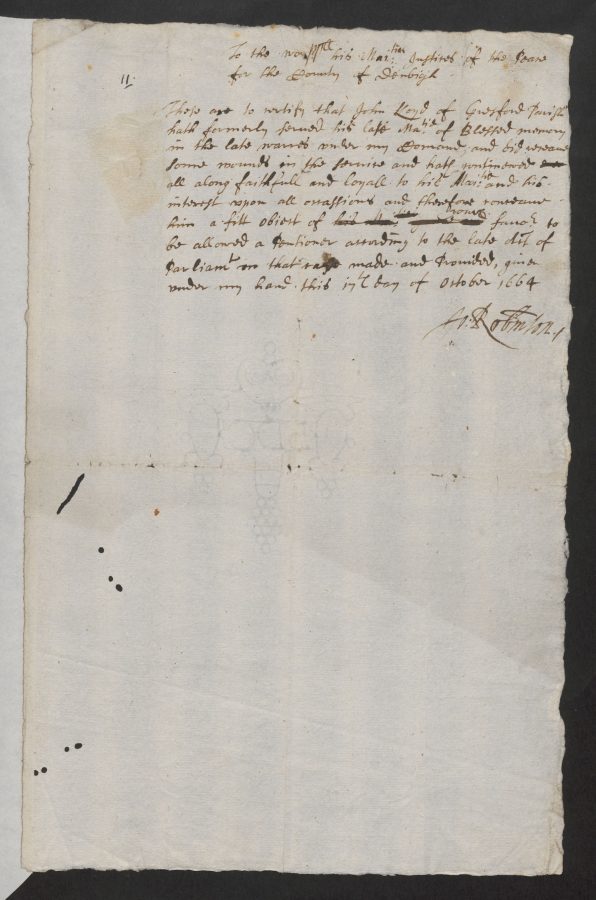 To the worpll his Maities Justices of the Peace
for the County of Denbigh
11
These are to certify that John Loyd of Gresford Parish
hath formerly served his late Matie of Blessed memory
in the late warres under my Comand, and did receaue
some wounds in the service and hath continewed
all along faithfull and loyall to his Maiestie and his
interest vpon all occassions and therefore conceaue
him a fitt obiect of his your favor to
be allowed a Pentioner according to the late Act of
Parliamt in that case made and Provided, given
vnder my hand this 17th day of October 1664
Robinson